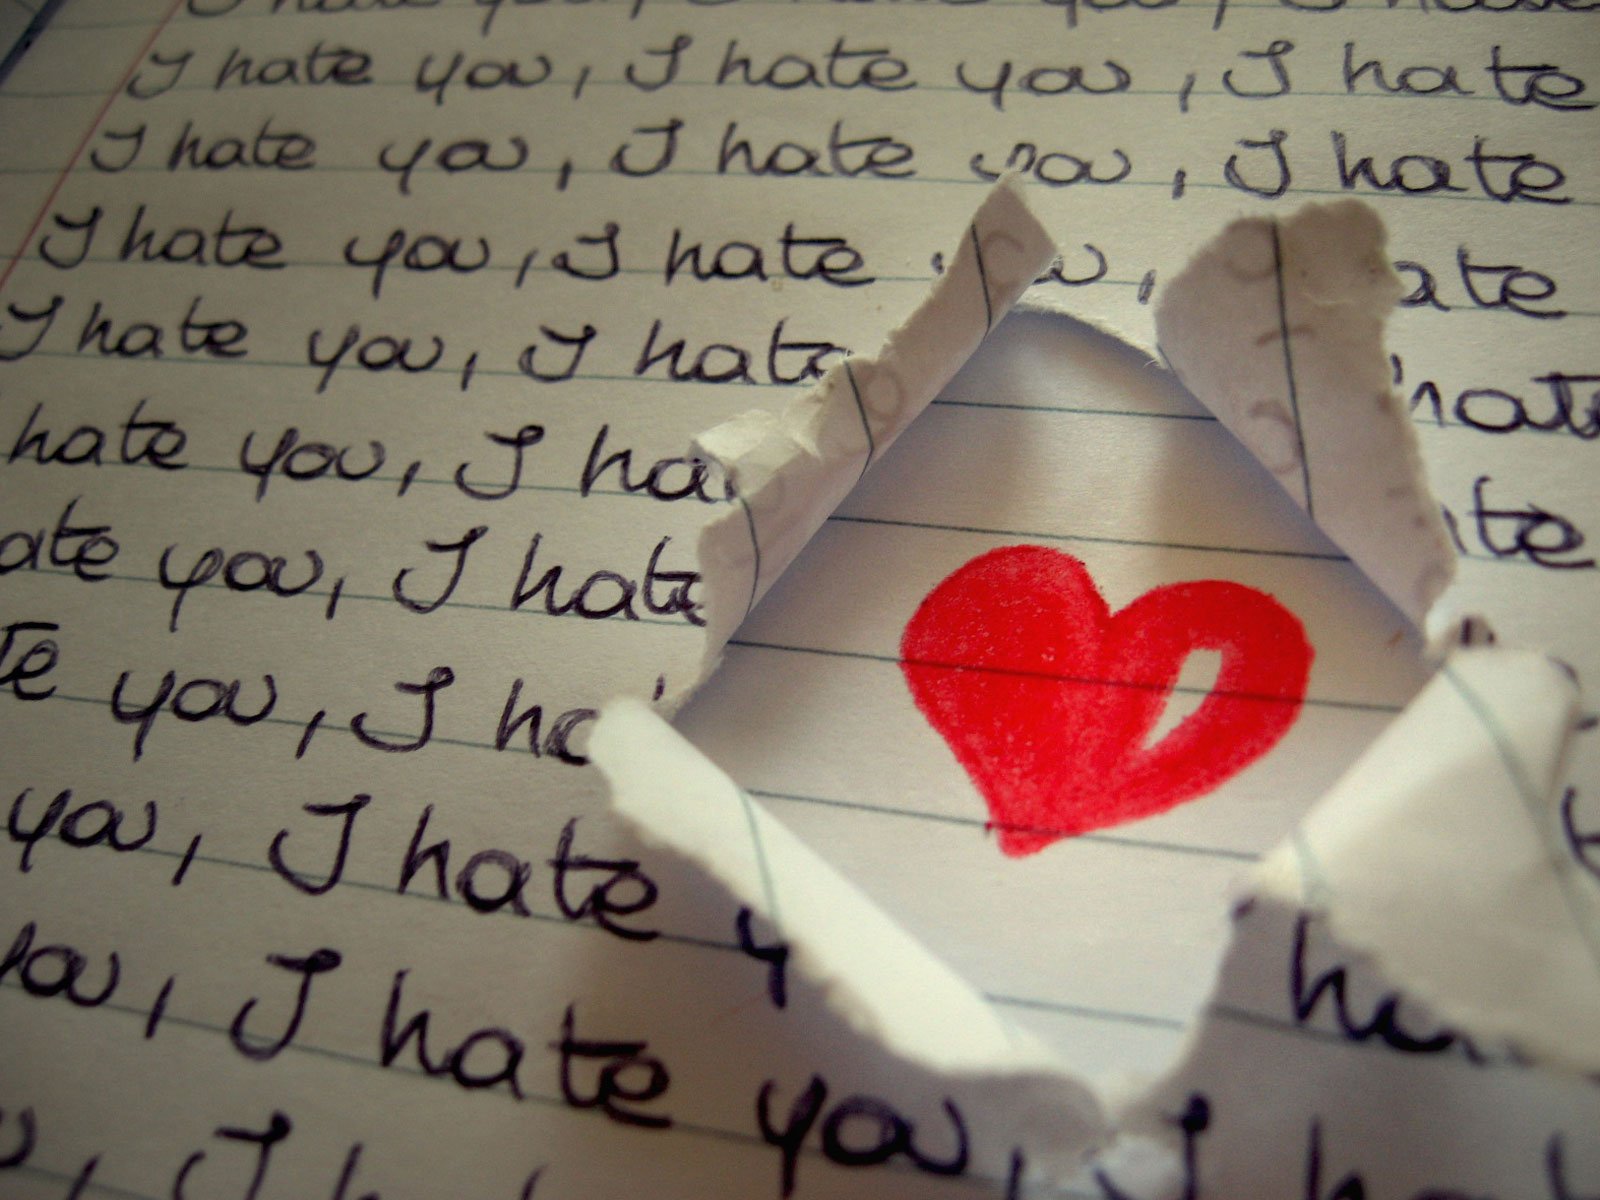 I hate you, I hate you, I hate
I hate you, I hate you, I hate
I hate you, I hate you, I hate
I hate you, I hate
I hate you, I hate
hate you, I ha
ate you, I hate
te you, I ha
you, I hate y
you, I hate you, I
I